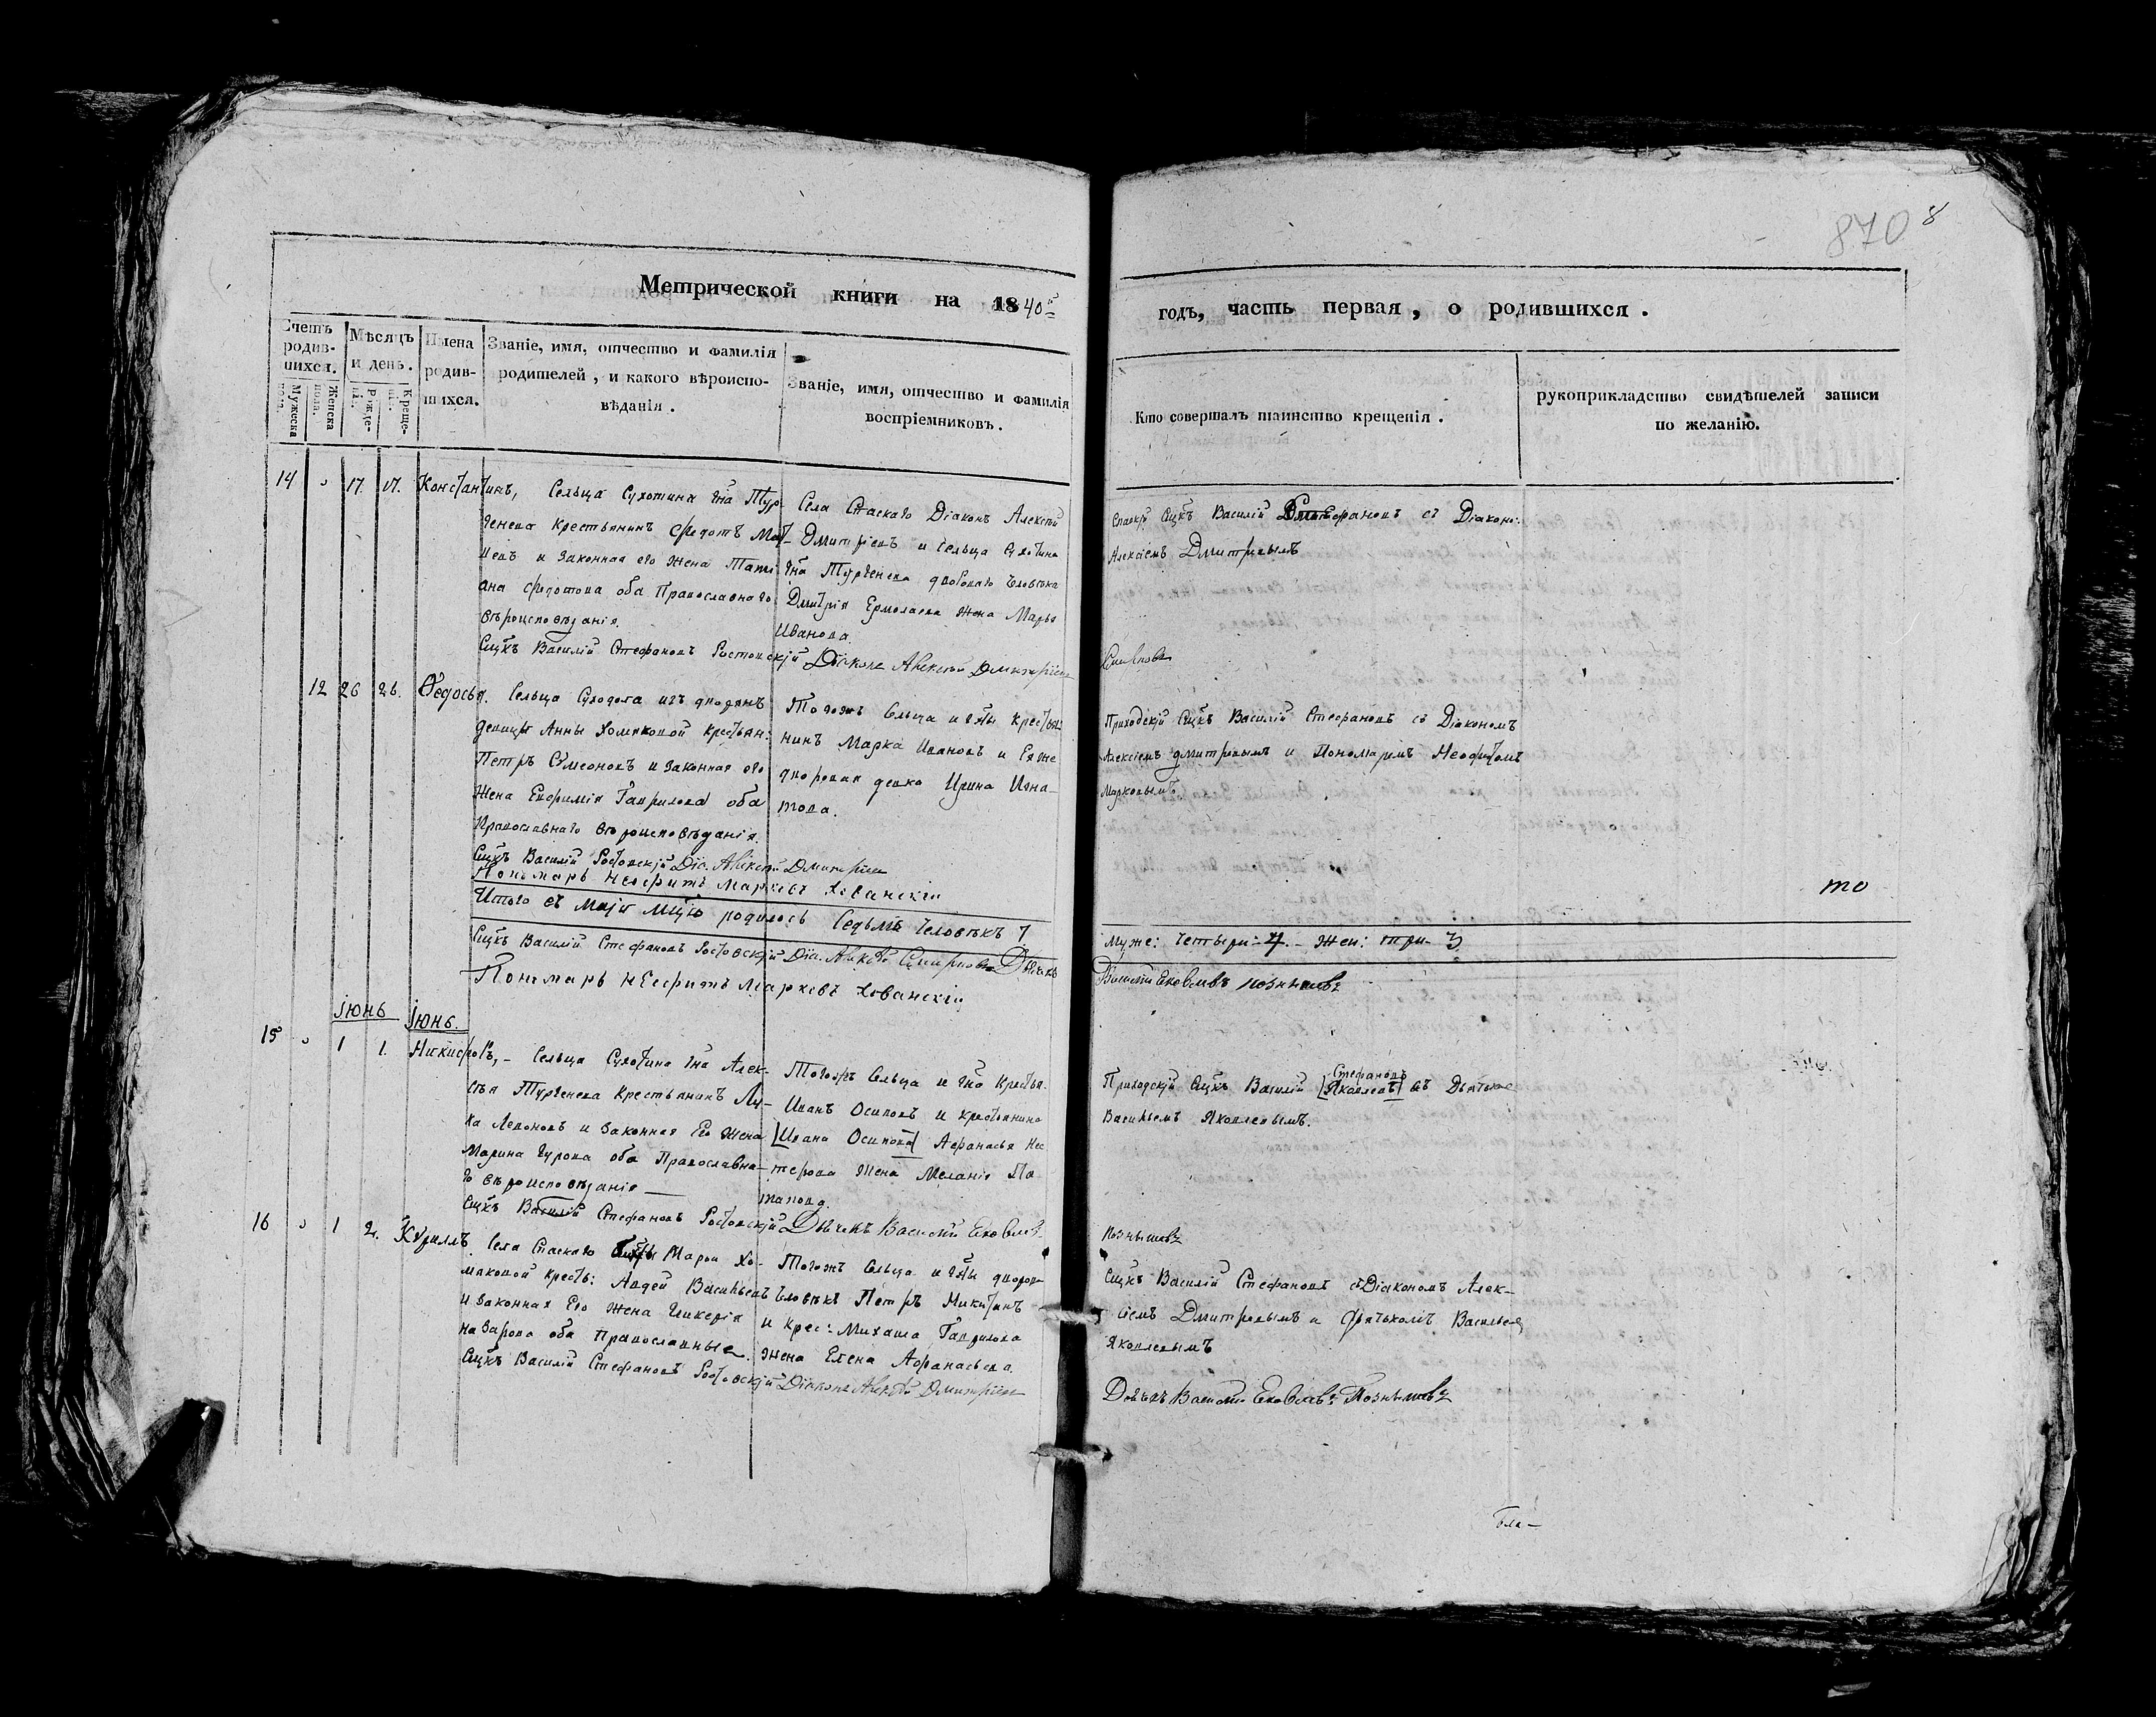 870 8
Метрической книги на 1840й
годъ, часть первая, о родившихся.
Счетъ родив-шихся.
Мужеска пола.
Женска пола.
Мѣсяцъ и день.
Рожде-нія.
Креще-нія.
Имена родив-шихся.
Званіе, имя, отчество и фамилія
родителей, и какого вѣроиспо-
вѣданія.
Званіе, имя, отчество и фамилія
воспріемниковъ.
Кто совершалъ таинство крещенія.
рукоприкладство свидѣтелей записи
по желанію.
14 17. 17. Константинъ, Сельца Сухотина Гна Тур-
генева крестьянинъ Федотъ
и законная его жена Тати-
ана Федотова оба Православнаго
вѣроисповѣданія.
Сщ҃къ Василій Стефановъ Ростовскій
Села Спаскаго Діаконъ Алексѣй
Дмитріевъ и сельца Сухотина
Гна Тургенева двороваго человѣка
Дмитрія Ермолаева жена Марья
Иванова.
Діаконъ Алексѣй Дмитріевъ
Сщ҃къ Василій Стефановъ съ Діакон:
Алексіемъ Дмитріевымъ
Смирновъ
12 26 26. Ѳедосья. Сельца Суходола изъ дворянъ
девицы Анны Хомяковой крестьян:
Петръ Сѵмеоновъ и законная его
жена Евфимія Гаврилова оба
Православнаго вѣроисповѣданія.
Сщ҃къ Василій Ростовскій Діа. Алексѣй Дмитріевъ
Пономарь Неофитъ Марковъ Хованскій
Тогожъ сельца и Гжы крестья-
нинъ Марка Ивановъ и Ея же
дворовая девка Ирина Игна-
това.
Приходскій Сщ҃къ Василій Стефановъ съ Діакономъ
Алексіемъ Дмитріевымъ и Пономаремъ Неофитомъ
Марковымъ.
то
Итого въ Маіи мцѣ родилось Седьмъ человѣкъ 7
Муже: четыри - 4. - Жен: три - 3
Сщ҃къ Василій Стефановъ Ростовскій Діа. Алексѣй Смирновъ Дьячекъ
Василій Яковлевъ Познышевъ
Пономарь Неофитъ Марковъ Хованскій
Іюнь Іюнь.
15 1 1. Никифоръ, - Сельца Сухотина Гна Алек-
сѣя Тургенева Крестьянинъ Лу-
ка Леоновъ и законная Его жена
Марина Гурова оба Православна-
го вѣроисповѣданія
Сщ҃къ Василій Стефановъ Ростовскій Дьячекъ Василій Яковлевъ
Тогожъ сельца и Гна крестья.
Иванъ Осиповъ и крестьянина
[Ивана Осипова] Афанасья Нес-
терова жена Меланія По-
тапова
Приходскій Сщ҃къ Василій [Яковлевъ] Стефановъ съ Дьячком
Васильемъ Яковлевымъ.
Познышевъ
16 1 2. Кѵриллъ. Села Спаскаго Гжы Марьи Хо-
мяковой крестъ: Авдей Васильевъ
и законная Его жена Гликерія
Назарова оба Православные.
Сщ҃къ Василій Стефановъ Ростовскій Діаконъ Алексѣй Дмитріевъ
Тогожъ сельца и Гжы дворов.
человѣкъ Петръ Микитинъ
и крес: Михаила Гаврилова
жена Елена Афанасьева.
Сщ҃къ Василій Стефановъ съ Діакономъ Алек-
сіемъ Дмитріевымъ и Дьячкомъ Васильем
Яковлевымъ
Дьячекъ Василій Яковлевъ Познышевъ